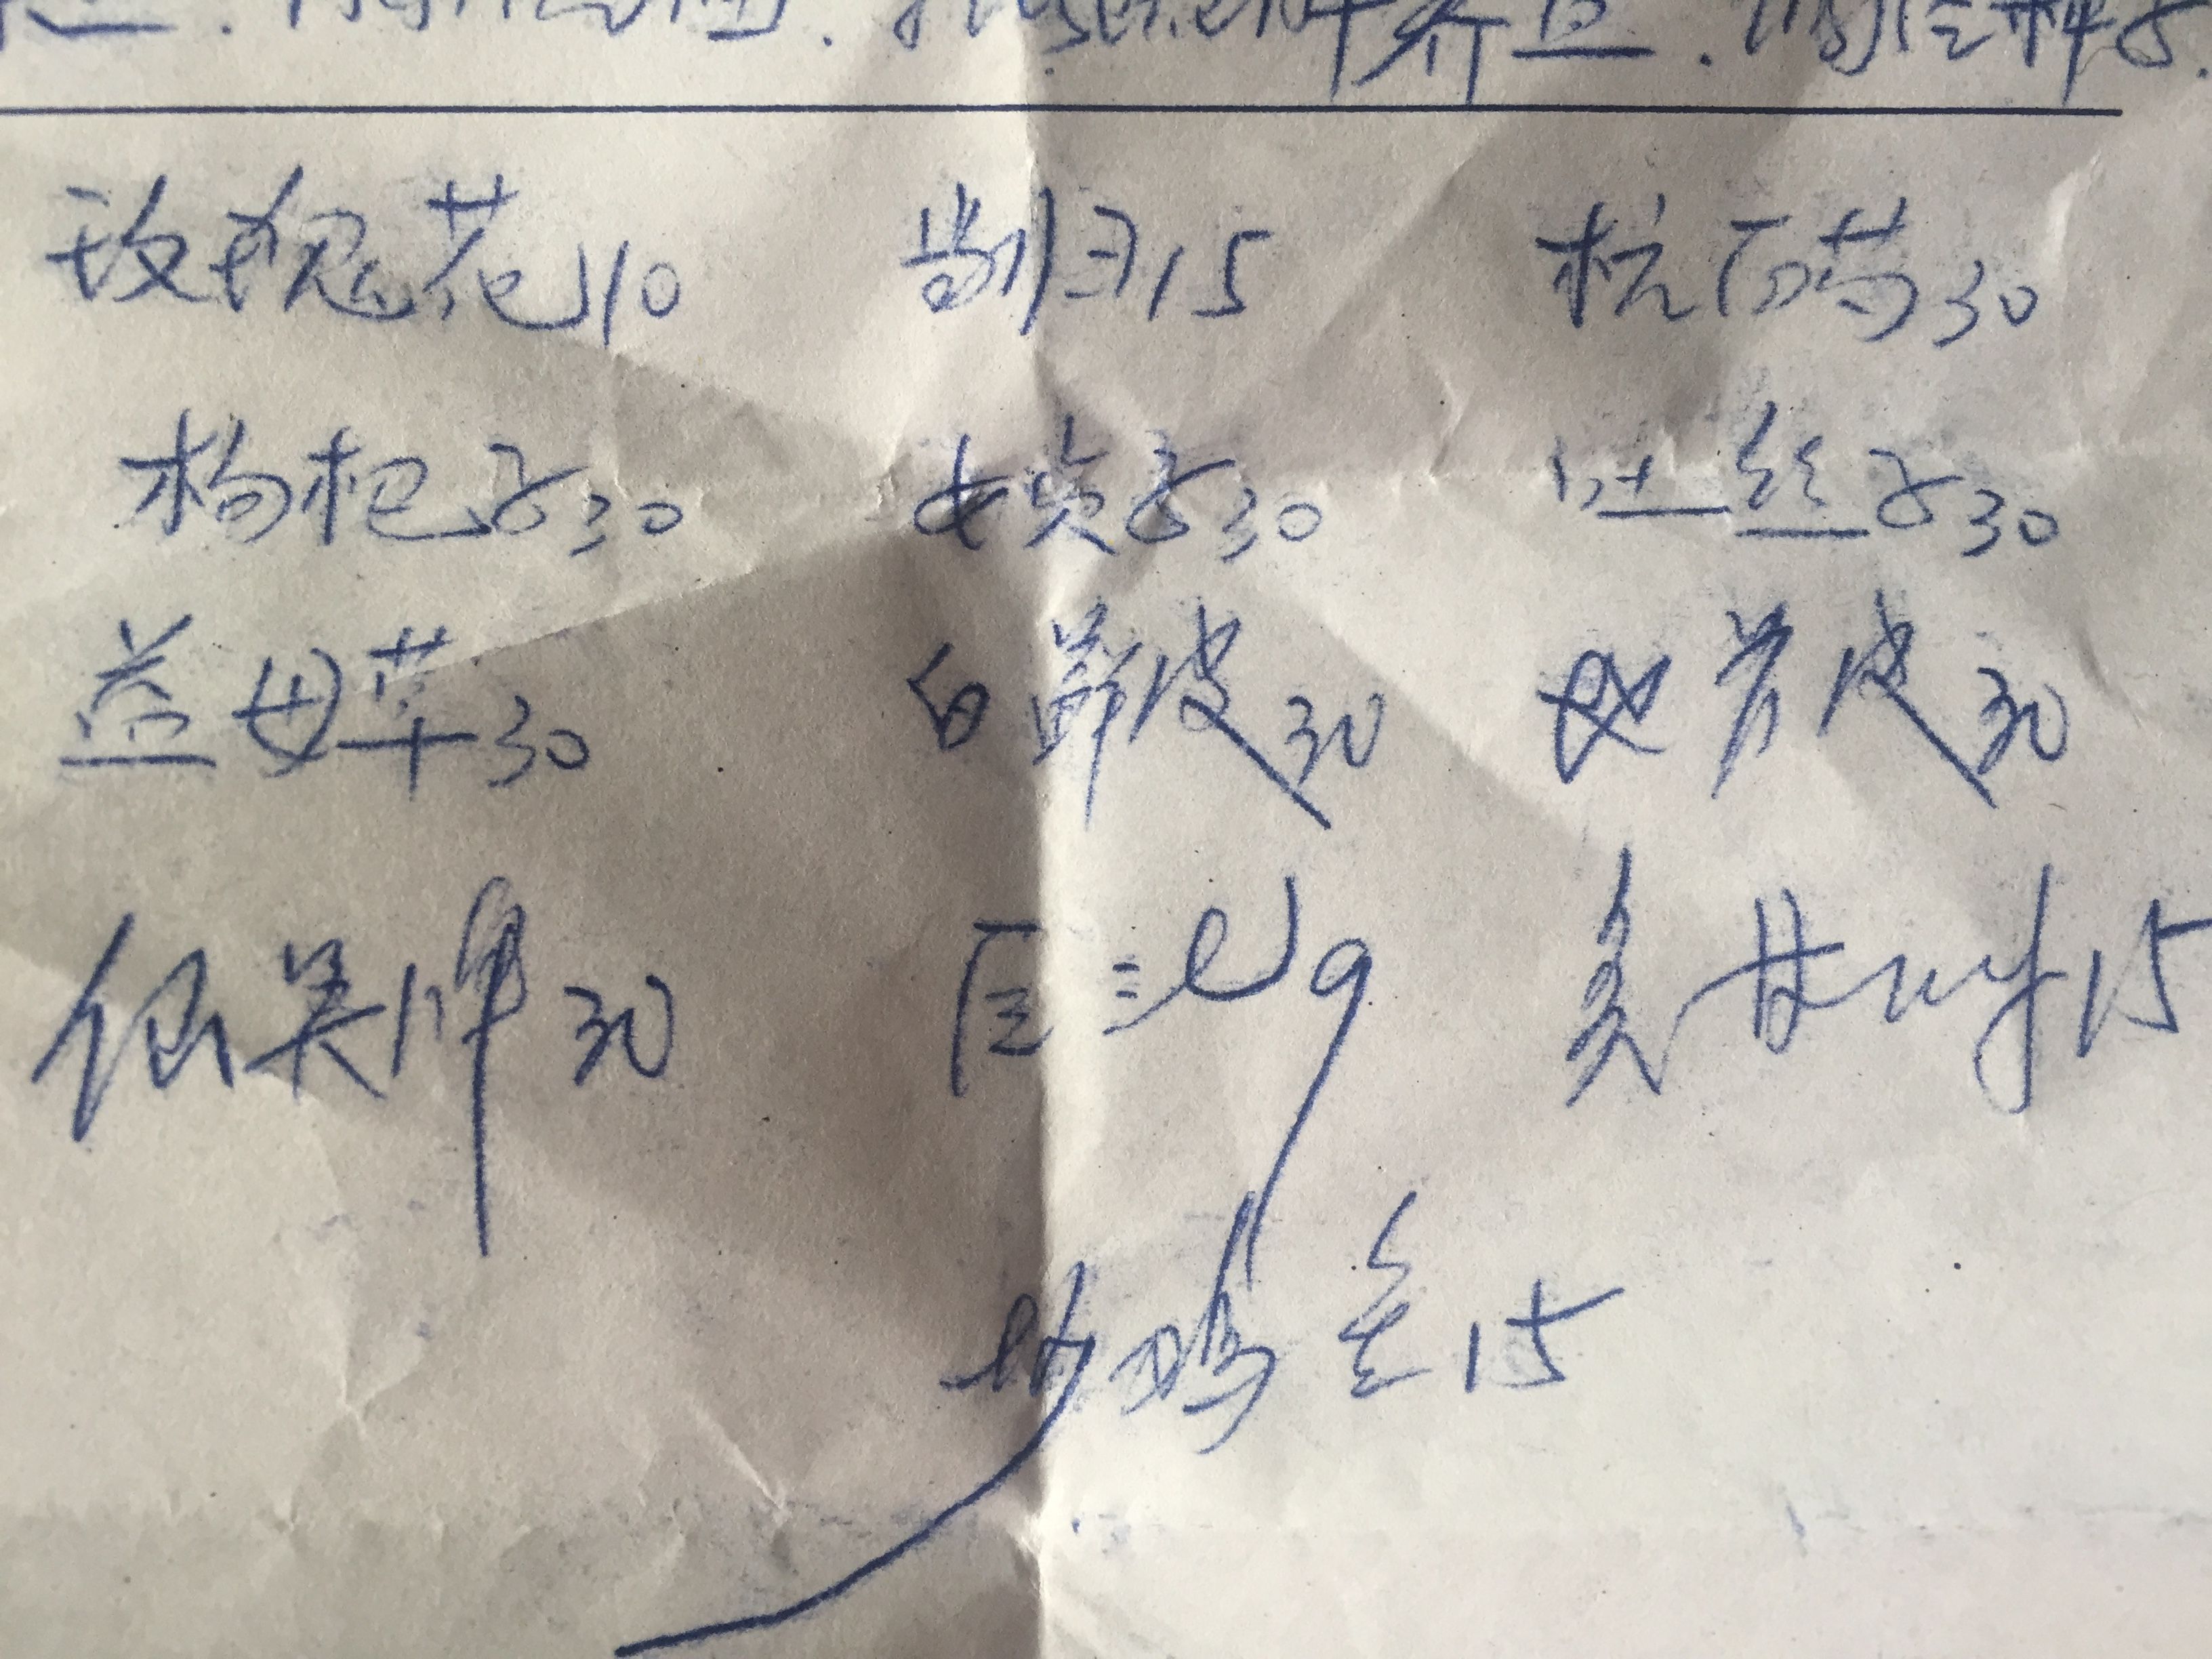 玫瑰花10 当归15 杭白芍30
枸杞子30 女贞子30 吐丝子30
益母草30 白鲜皮30 地骨皮30
仙灵脾30 9 炙甘草15
炒鸡金15